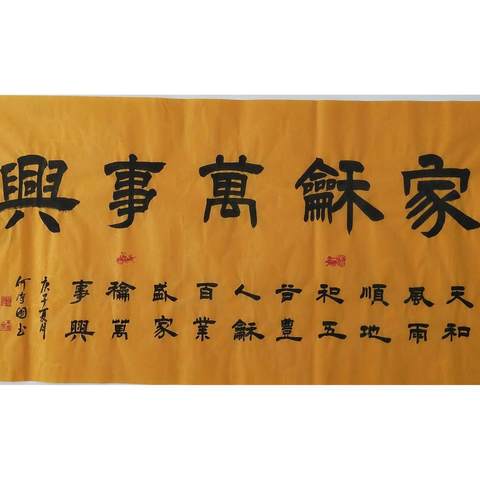 家龢萬事興
天和
風雨
順地
和五
谷豐
人龢
百業
盛家
龢萬
事興
庚子夏月
何國书